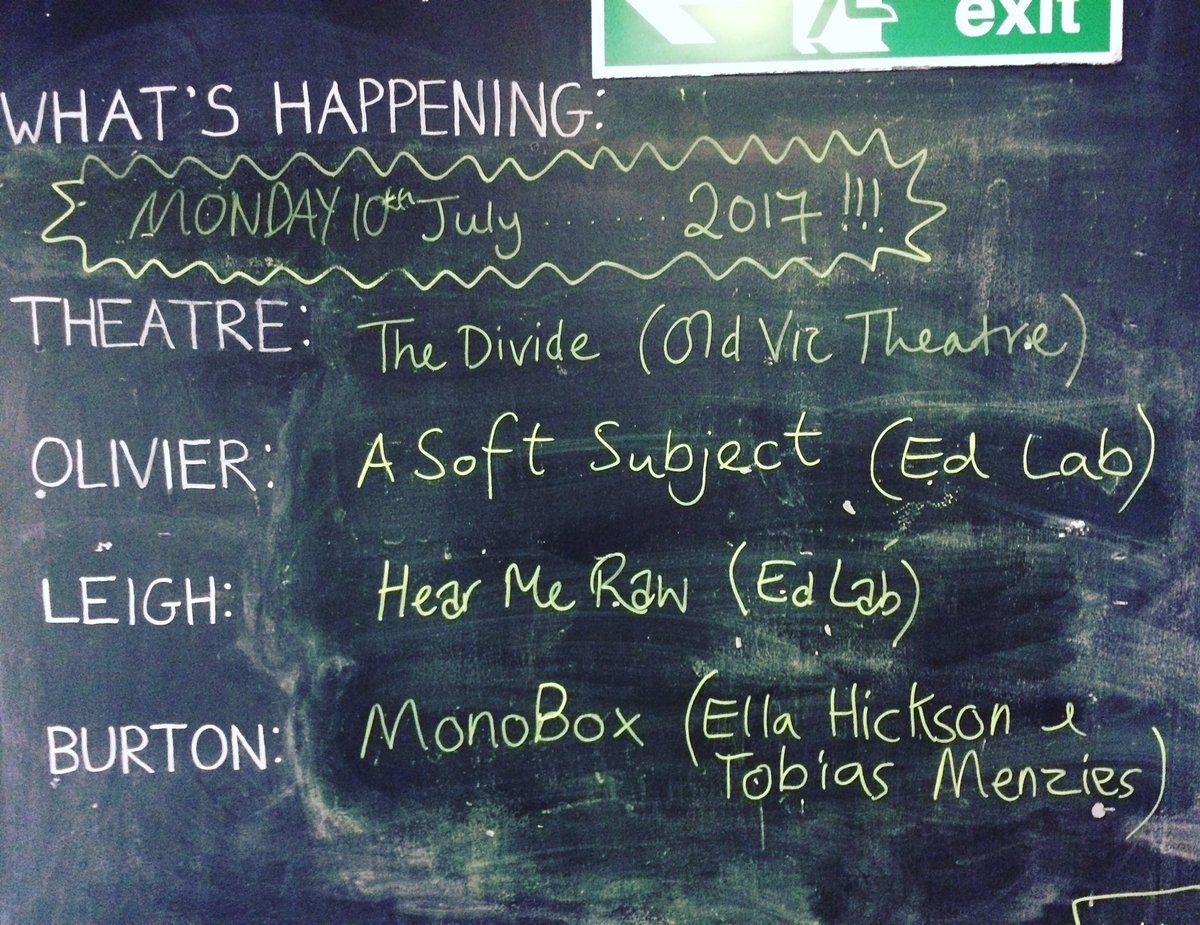 exit
WHAT'S HAPPENING:
MONDAY 10th July ........ 2017 !!!
THEATRE: The Divide (Old Vic Theatre)
OLIVIER: A Soft Subject (Ed Lab)
LEIGH: Hear Me Raw (Ed Lab)
BURTON: MonoBox (Ella Hickson &
Tobias Menzies)